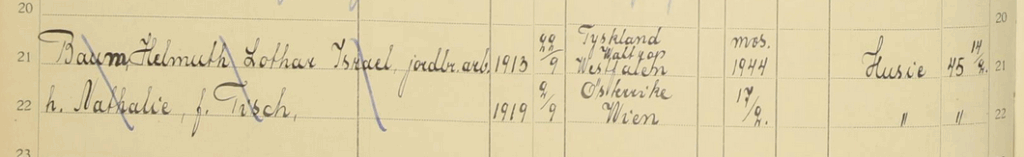 20 20
21 Baum, Helmuth Lothar Israel, jordbr.arb. 1913 22/9 Tyskland Waltrop Westfalen mos. 1944 Husie 45 14/2. 21
22 h. Nathalie, f. Tisch, 1919 2/9 Österrike Wien 17/2. " " 22
23